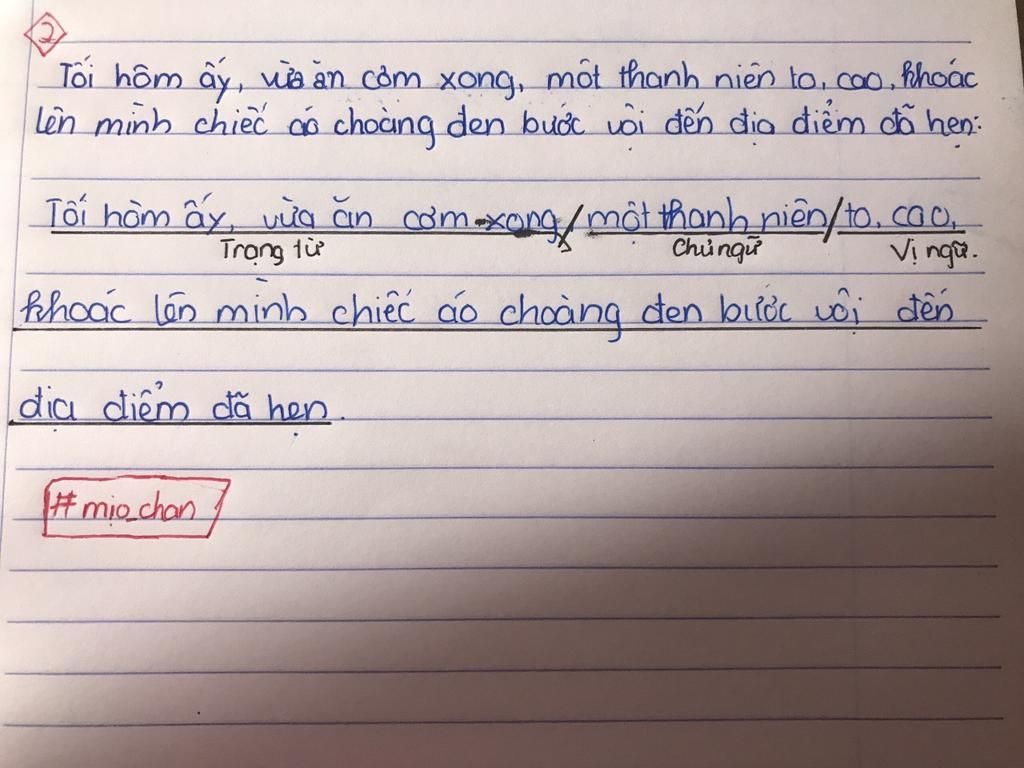 2
Tối hôm ấy, vừa ăn cơm xong, một thanh niên to, cao, khoác
lên mình chiếc áo choàng đen bước vội đến địa điểm đã hẹn.
Tối hôm ấy, vừa ăn cơm xong / một thanh niên / to, cao,
Trạng từ Chủ ngữ Vị ngữ.
khoác lên mình chiếc áo choàng đen bước vội đến
địa điểm đã hẹn.
#mio_chan